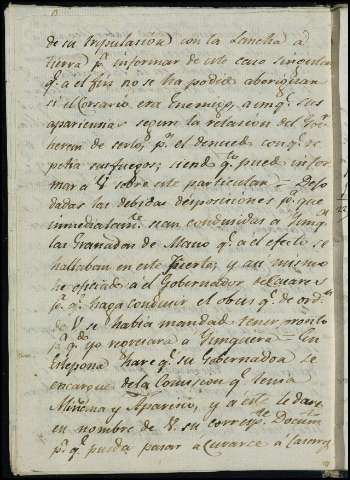 de su tripulacion con la Lancha a
tierra p.ª informar de este caso singular
q.e a el fin no se ha podido aberiguar
si el Corsario era Enemigo, aunq.e sus
apariencias segun la relacion del
heran de serlo, p.r el denuedo con q.e re-
petia sus fuegos, siendo q.to puedo infor-
mar a V. sobre este particular = Dejo
dadas las debidas desposiciones p.ª que
inmediatam.te sean conducidas a
las Granadas de Mano q.e a el efecto se
hallaban en este Puerto, y asi mismo
he oficiado a el Gobernador de
p.ª q.e haga conducir el obus q.e de ord.n
de V. se habia mandado tener pronto
p.ª q.do yo regresara a = En
Estepona hare q.e su Gobernador se
encargue de la Comision q.e tenia
y Aparicio, y a este le dare
en nombre de V. su corresp.te Docum.to
p.ª q.e pueda pasar a Curarse a